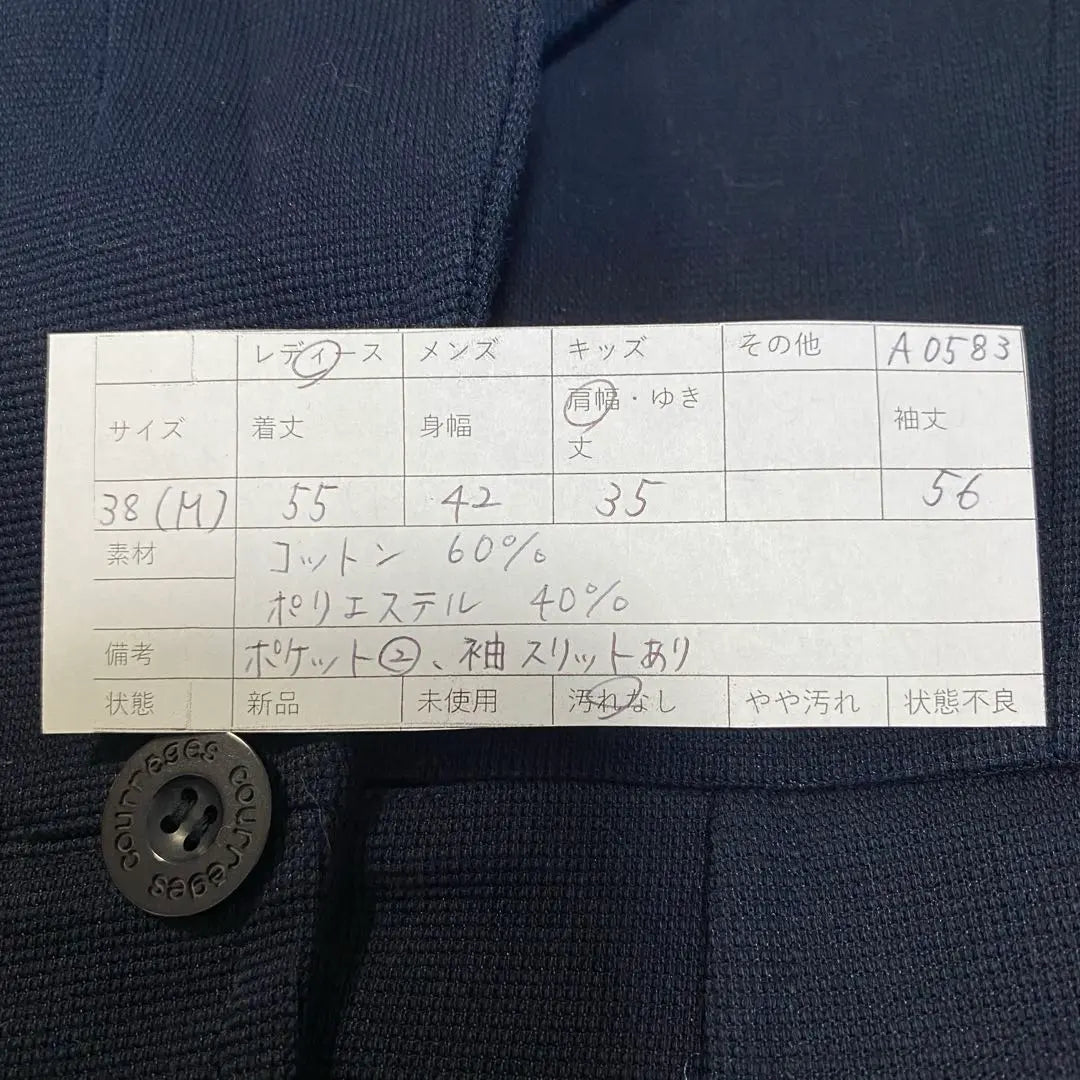 レディース メンズ キッズ その他 A0583
サイズ 着丈 身幅 肩幅・ゆき丈 袖丈
38(M) 55 42 35 56
素材 コットン 60%
ポリエステル 40%
備考 ポケット②、袖スリットあり
状態 新品 未使用 汚れなし やや汚れ 状態不良
courreges courreges courreges